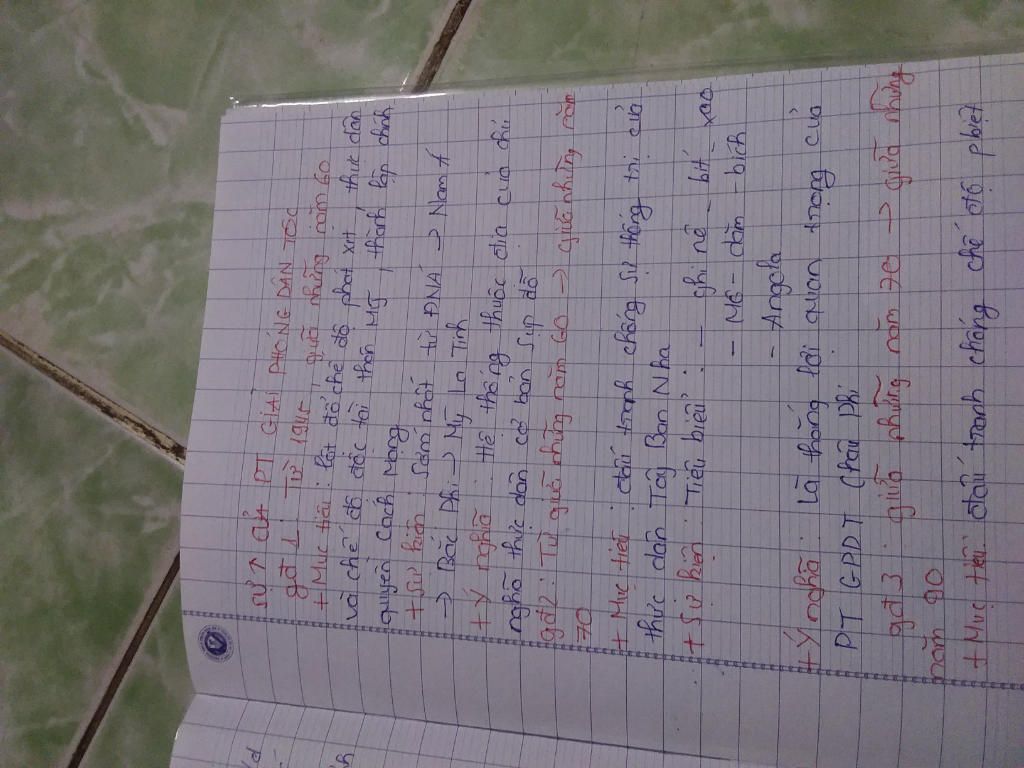 SỰ ↑ CỦA PT GIẢI PHÓNG DÂN TỘC
gđ 1 : Từ 1945 → giữa những năm 60
+ Mục tiêu : lật đổ chế độ phát xít thực dân
và chế độ độc tài thân Mỹ, thành lập chính
quyền cách mạng
+ Sự kiện : Sớm nhất từ ĐNÁ → Nam Á
→ Bắc Phi → Mỹ La Tinh
+ Ý nghĩa : Hệ thống thuộc địa của chủ
nghĩa thực dân cơ bản sụp đổ
gđ 2 : Từ giữa những năm 60 → giữa những năm
70
+ Mục tiêu : đấu tranh chống sự thống trị của
thực dân Tây Ban Nha
+ Sự kiện : Tiêu biểu : - ghi nê - bít - xao
- Mô - dăm - bích
- Angola
+ Ý nghĩa : Là thắng lợi quan trọng của
PT GPDT Châu Phi
gđ 3 : giữa những năm 70 → giữa những
năm 90
+ Mục tiêu : đấu tranh chống chế độ phbiệt